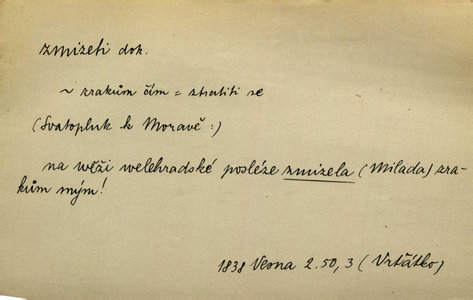 zmizeti dok.
~ zrakům čím = ztratiti se
(Svatopluk k Moravě:)
na wěži welehradské posléze zmizela (Milada) zra-
kům mým!
1838 Vesna 2.50,3 (Vrťátko)